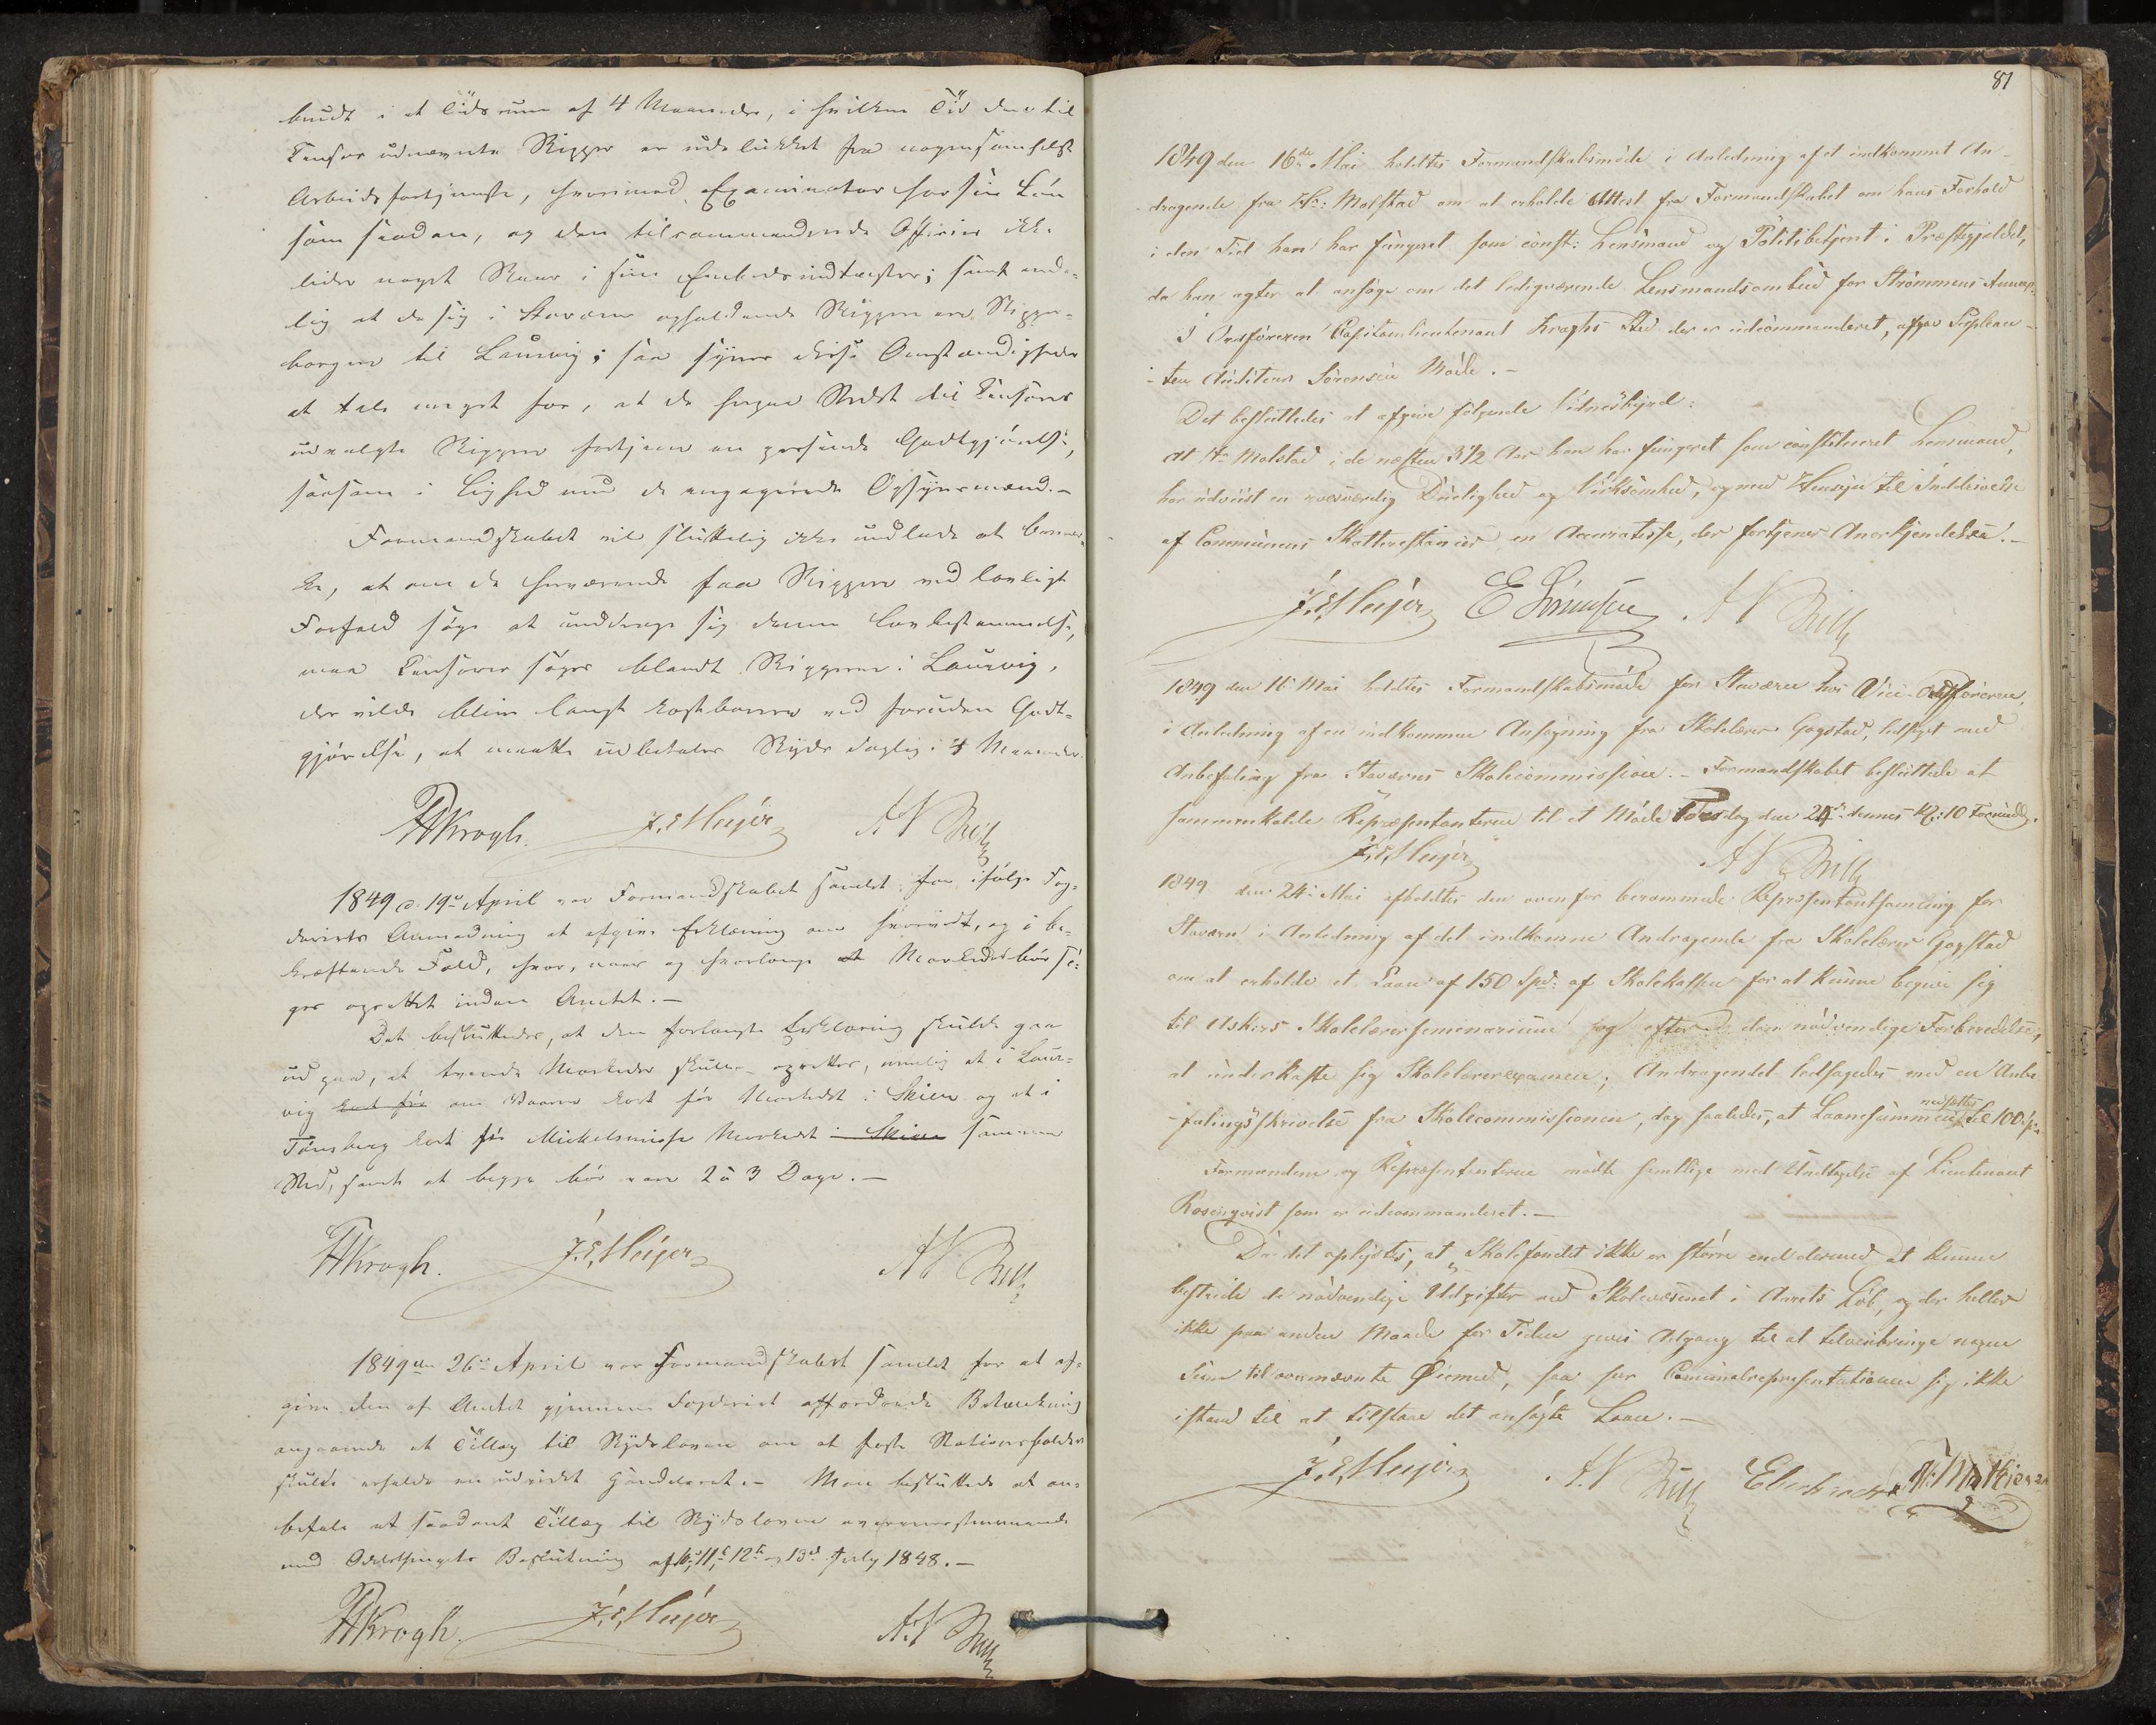 bundt i et Tidsrum af 4 Maaneder, i hvilken Tid den til
Censor udnævnte Skipper er udelukket fra nogensomhelst
Arbeidsfortjeneste, hvorimod Examinator har sin Løn
som saadan, og den tilcommanderede Officier ikke
lider noget Skaar i sine Embedsindtægter; samt ende-
lig at de sig i Staværn opholdende Skippere ere Skipper-
borgere til Laurvig; saa synes disse Omstændigheder
at tale meget for, at de herpaa Stedet til Censorer
udvalgte Skippere fortjene en passende Godtgjørelse,
saasom i Lighed med de engagerede Opsynsmænd.-
Formandskabet vil sluttelig ikke undlade at bemær-
ke, at om de herværende faa Skippere ved lovligt
Forfald søge at unddrage sig denne Lovbestemmelse,
maa Censorer søges blandt Skipperne i Laurvig,
der vilde blive langt kostbarere ved foruden Godt-
gjørelse, at maatte udbetales Skyds daglig i 4 Maaneder.
FHKrogh. J.E.Meyer AN Bull
1849 d. 19de April var Formandskabet samlet for ifølge Fog-
deriets Anmodning at afgive Erklæring om hvorvidt, og i be-
kræftende Fald, hvor, naar og hvorlænge et Marked bør sø-
ges oprettet inden Amtet.-
Det besluttedes, at den forlangte Erklæring skulde gaa
ud paa, at tvende Markeder skulle oprettes, nemlig et i Laur-
vig kort før om Vaaren kort før Markedet i Skien og et i
Tønsberg kort før Mickelsmisse Markedet i Skien samme
Sted, samt at begge bør vare 2 à 3 Dage.-
FHKrogh. J.E.Meyer AN Bull
1849 den 26de April var Formandskabet samlet for at af-
give den af Amtet gjennem Fogderiet affordrede Betænkning
angaaende et Tillæg til Skydsloven om at faste Stationsholdere
skulde erholde en udvidet Haandværet.- Man besluttede at an-
befale et saadant Tillæg til Skydsloven overeensstemmende
med Odelsthingets Beslutning af 11te, 12te og 13de July 1848.-
FHKrogh. J.E.Meyer A.N Bull
81
1849 den 16de Mai holdtes Formandskabsmøde i Anledning af et indkommet An-
dragende fra Hr: Molstad om at erholde Attest fra Formandskabet om hans Forhold
i den Tid han har fungeret som const: Lensmand og Politibetjent i Præstegjeldet,
da han agter at ansøge om det ledigværende Lensmandsombud for Strømmens Annex.
I Ordføreren Capitainlieutenant Kroghs Sted der er udcommanderet, afgav Suplean-
ten Auditeur Sørensen Møde.-
Det besluttedes at afgive følgende Vidnesbyrd:
At Hr Molstad i de næsten 3 1/2 Aar han har fungeret som constitueret Lensmand,
har udviist en roesværdig Duelighed og Virksomhed, og med Hensyn til Inddrivelse
af Communens Skatterestancer en Accuratesse, der fortjener Anerkjendelse.-
J.E.Meyer E Sörensen AN Bull
1849 den 16 Mai holdtes Formandskabsmøde for Staværn hos Vice-Ordføreren,
i Anledning af en indkommen Ansøgning fra Skolelærer Gogstad, ledsaget med
Anbefaling fra Staværns Skolecommission.- Formandskabet besluttede at
sammenkalde Repræsentanterne til et Møde Torsdag den 24de dennes Kl: 10 Formidd.
J.E.Meyer AN Bull
1849 den 24de Mai afholdtes den ovenfor berammede Repræsentantsamling for
Staværn i Anledning af det indkomne Andragende fra Skolelærer Gogstad
om at erholde et Laan af 150 Spd: af Skolekassen for at kunne begive sig
til Askers Skolelærerseminarium og efter den nødvendige Forberedelse,
at underkaste sig Skolelærerexamen; Andragendet ledsagedes med en Anbe-
nedsættes
falingsskrivelse fra Skolecommissionen, dog saaledes, at Laanesummen til 100 Spd.
Formændene og Repræsentanterne mødte samtlige med Undtagelse af Lieutenant
Rosenqvist som er udcommanderet.-
Da det oplystes, at Skolefondet ikke er større end dermed at kunne
bestride de nødvendige Udgifter ved Skolevæsenet i Aarets Løb, og der heller
ikke paa anden Maade for Tiden gives Adgang til at tilveiebringe nogen
Sum til ovennævnte Øiemed, saa seer Communalrepresentationen sig ikke
istand til at tilstaae det ansøgte Laan.-
J.E.Meyer A.N Bull